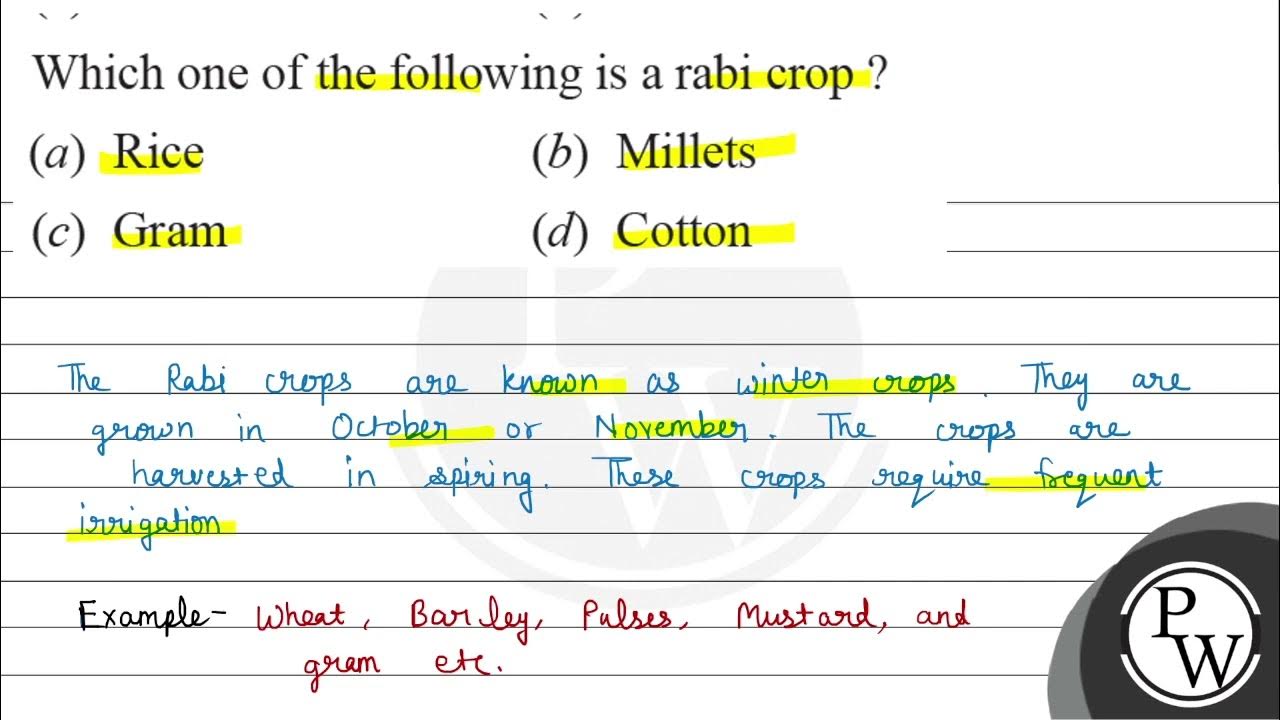 Which one of the following is a rabi crop ?
(a) Rice (b) Millets
(c) Gram (d) Cotton
The Rabi crops are known as winter crops. They are
grown in October or November. The crops are
harvested in spiring. These crops require frequent
irrigation
Example- Wheat, Barley, Pulses, Mustard, and
gram etc.
PW